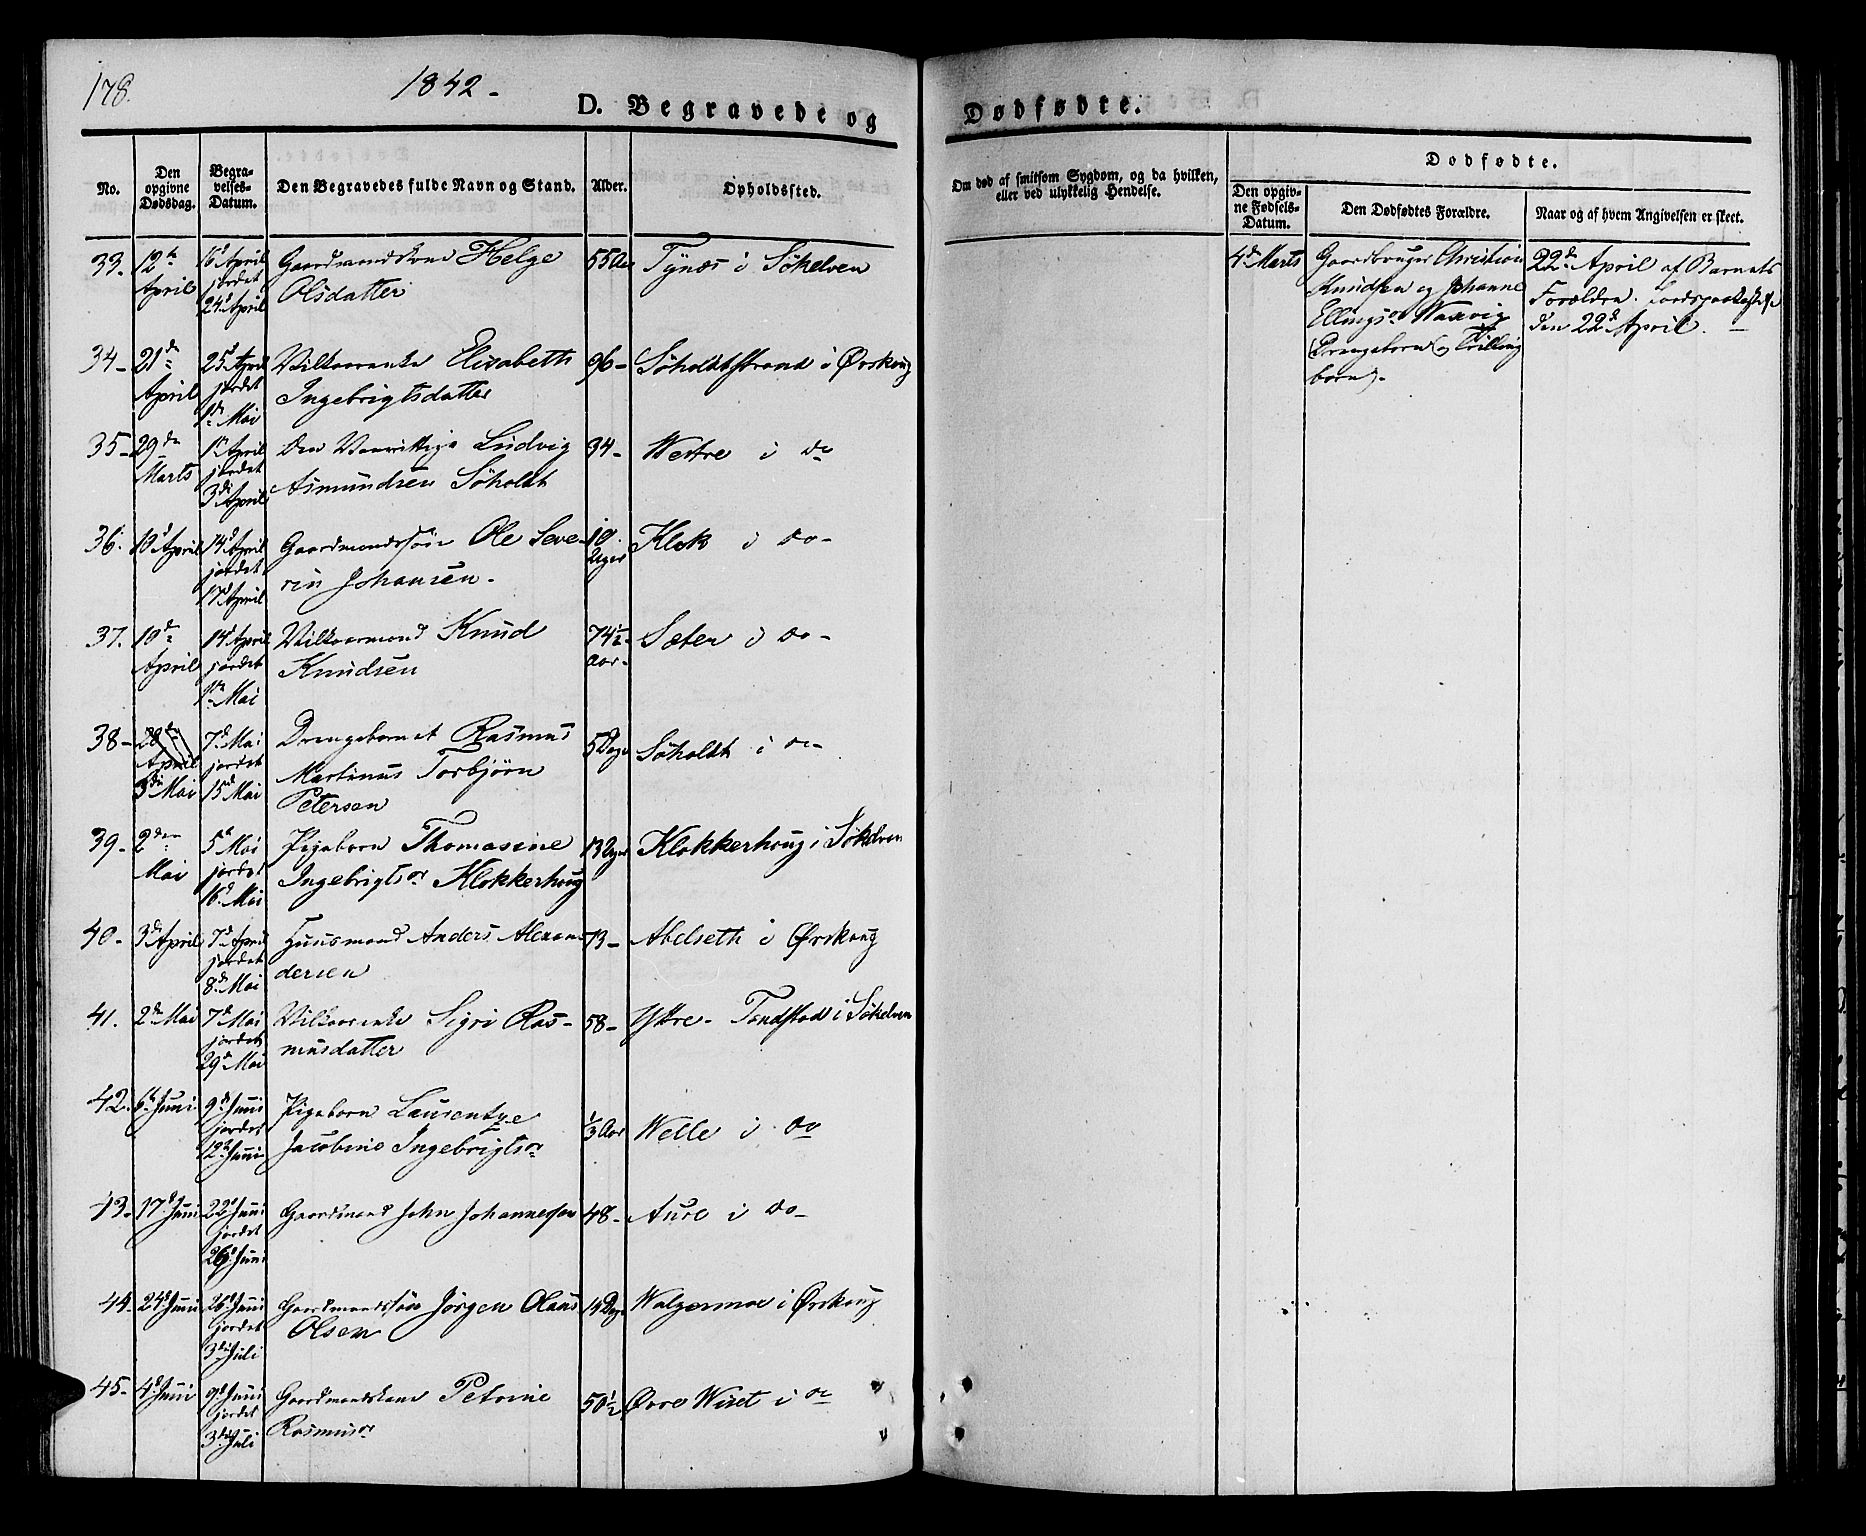 178.
1842-
D. Begravede og
No.
Den opgivne Dødsdag.
Begravelses-Datum.
Den Begravedes fulde Navn og Stand.
Alder.
Opholdssted.
33. 12te April 16d April jordet 24d April Gaardmandskone Helge Olsdatter 55 Aar Tynæs i Søkelven
34- 21de April 25d April jordet 1de Mai Vilkaarenke Elisabeth Ingebrigtsdatter 96- Søholdtstrand i Ørskoug
35- 29de Marts 1te April jordet 3di April Den Vanvittige Ludvig Asmundsen Søholdt 34- Westre i do
36. 10d April 14d April jordet 17d April Gaardmandssøn Ole Severin Johansen. 10 Uger Klok i do-
37. 10de April 14d April jordet 1te Mai Vilkaarmand Knud Knudsen 74½ Aar- Sæter i do-
38- 28de April 3di Mai 7d Mai jordet 15d Mai Drengebarnet Rasmus Martinus Torbjørn Petersen 5 Dage Søholdt i do-
39- 2den Mai 5te Mai jordet 16d Mai Pigebarn Thomasine Ingebrigtsdr Klokkerhoug 13 Dage Klokkerhoug i Søkelven
40- 3di April 7d April jordet 8d Mai Huusmand Anders Alexandersen 73- Abelseth i Ørskoug
41. 2den Mai 7d Mai jordet 29d Mai Vilkaarenke Sigri Rasmusdatter 58- Yttre- Tandstad i Søkelven
42. 6te Juni 9d Juni jordet 12te Juni Pigebarn Laurentze Jacobine Ingebrigtsdr ⅓ Aar Welle i do
43. 17d Juni 22d Juni jordet 26d Juni Gaardmand John Johannesen 48- Aure i do-
44. 24d Juni 26d Juni jordet 3di Juli Gaardmandssøn Jørgen Olaus Olsen 14 Dage Walgermoe i Ørskoug
45- 4d Juni 9d Juni jordet 3di Juli Gaardmandskone Petrine Rasmusdr 50½ Øvre Wiset i do
Dødfødte.
Om død af smitsom Sygdom, og da hvilken,
eller ved ulykkelig Hendelse.
Dødfødte.
Den opgivne Fødsels-Datum.
Den Dødfødtes Forældre.
Naar og af hvem Angivelsen er skeet.
4d Marts
Gaardbruger Christian
Knudsen og Johanne
Ellingsdr Waxvig
(Drengebarn og Trilling
barn).
22d April af Barnets
Forældre. Jordspaakastelse
den 22d April. -